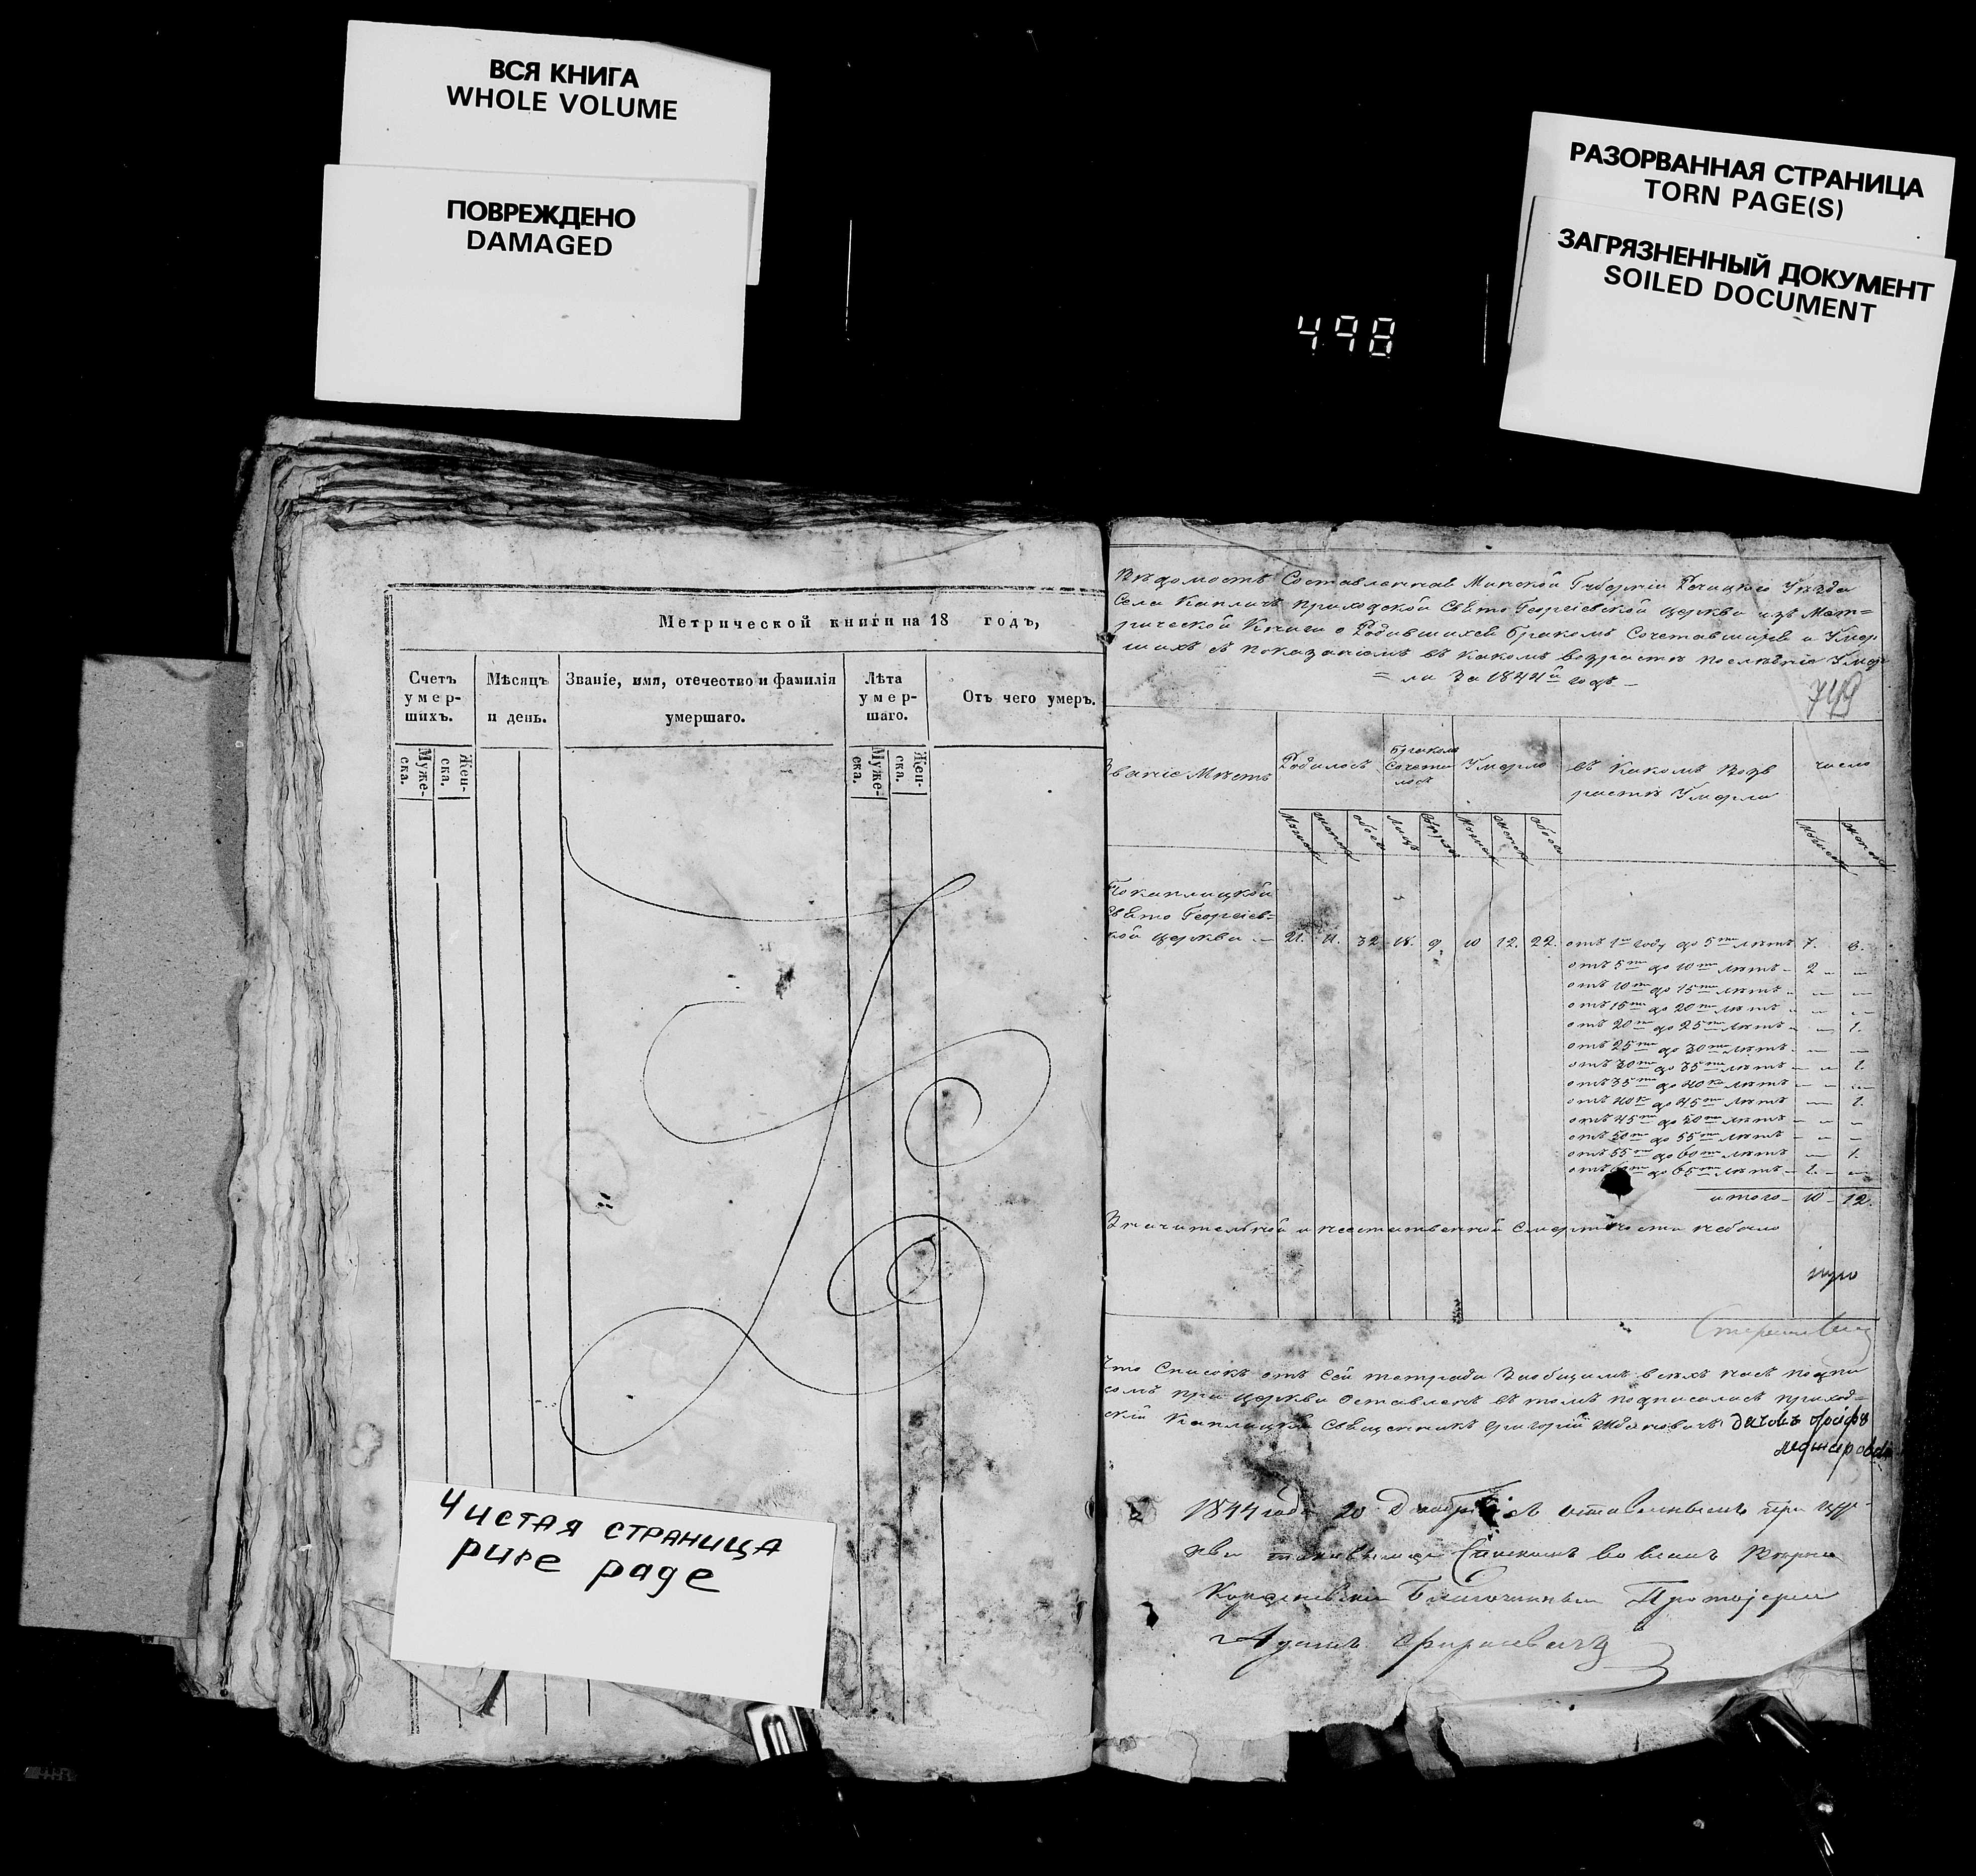 ВСЯ КНИГА
WHOLE VOLUME
ПОВРЕЖДЕНО
DAMAGED
РАЗОРВАННАЯ СТРАНИЦА
TORN PAGE(S)
ЗАГРЯЗНЕННЫЙ ДОКУМЕНТ
SOILED DOCUMENT
498
Метрической книги на 18 годъ,
Счетъ умер-шихъ.
Мѣсяцъ и день.
Званіе, имя, отечество и фамилія умершаго.
Лѣта умер-шаго.
Отъ чего умеръ.
Муже-ска.
Жен-ска.
Муже-ска.
Жен-ска.
Чистая страница
pure page
Вѣдомость Составленная Минской Губерніи Рѣчицкаго Уѣзда
Села Капличъ приходской Свято Георгіевской церкви изъ Мет=
рической Книги о Родившихся бракомъ Сочетавшихся и Умер
шихъ съ показаніемъ въ какомъ возрастѣ послѣдніе Умер
= ли За 1844й годъ
749
Званіе Мѣстъ
Родилось
бракомъ Сочета лось
Умерло
въ какомъ Возрастѣ Умерли
число
По каплицкой
Свято Георгіев=
кой церкви 21. 11. 32 18. 9. 10 12. 22. отъ 1го году до 5ти лѣтъ 7. 8.
отъ 5ти до 10ти лѣтъ 2 —
отъ 10ти до 15ти лѣтъ — —
отъ 15ти до 20ти лѣтъ — —
отъ 20ти до 25ти лѣтъ — 1.
отъ 25ти до 30ти лѣтъ — —
отъ 30ти до 35ти лѣтъ — 1.
отъ 35ти до 40ка лѣтъ — —
отъ 40ка до 45ти лѣтъ — 1.
отъ 45ти до 50ти лѣтъ — —
отъ 50ти до 55ти лѣтъ — —
отъ 55ти до 60ти лѣтъ — 1.
отъ до 65ти лѣтъ 1. —
итого 10 12.
Значительной и неестественной Смертности небыло
Что Списокъ отъ Сей тетради
при церкви Оставленъ въ томъ подписался приход=
скій Каплицкій Священникъ Григорій
1844 года 20 Декабря Съ оставленіемъ при цер-
кви Спискомъ во всемъ
Благочинный Протоіерей